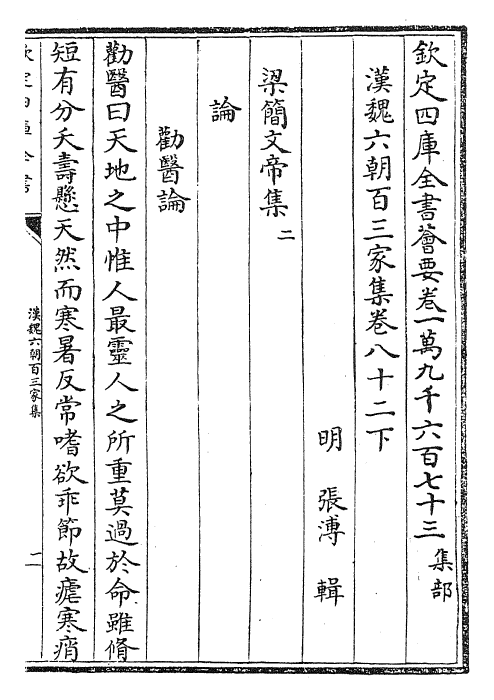 欽定四庫全書薈要卷一萬九千六百七十三 集部
漢魏六朝百三家集卷八十二下
明 張溥 輯
梁簡文帝集二
論
勸醫論
勸醫曰天地之中惟人最靈人之所重莫過於命雖脩
短有分夭壽懸天然而寒暑反常嗜欲乖節故瘧寒痟
欽定四庫全書
漢魏六朝百三家集